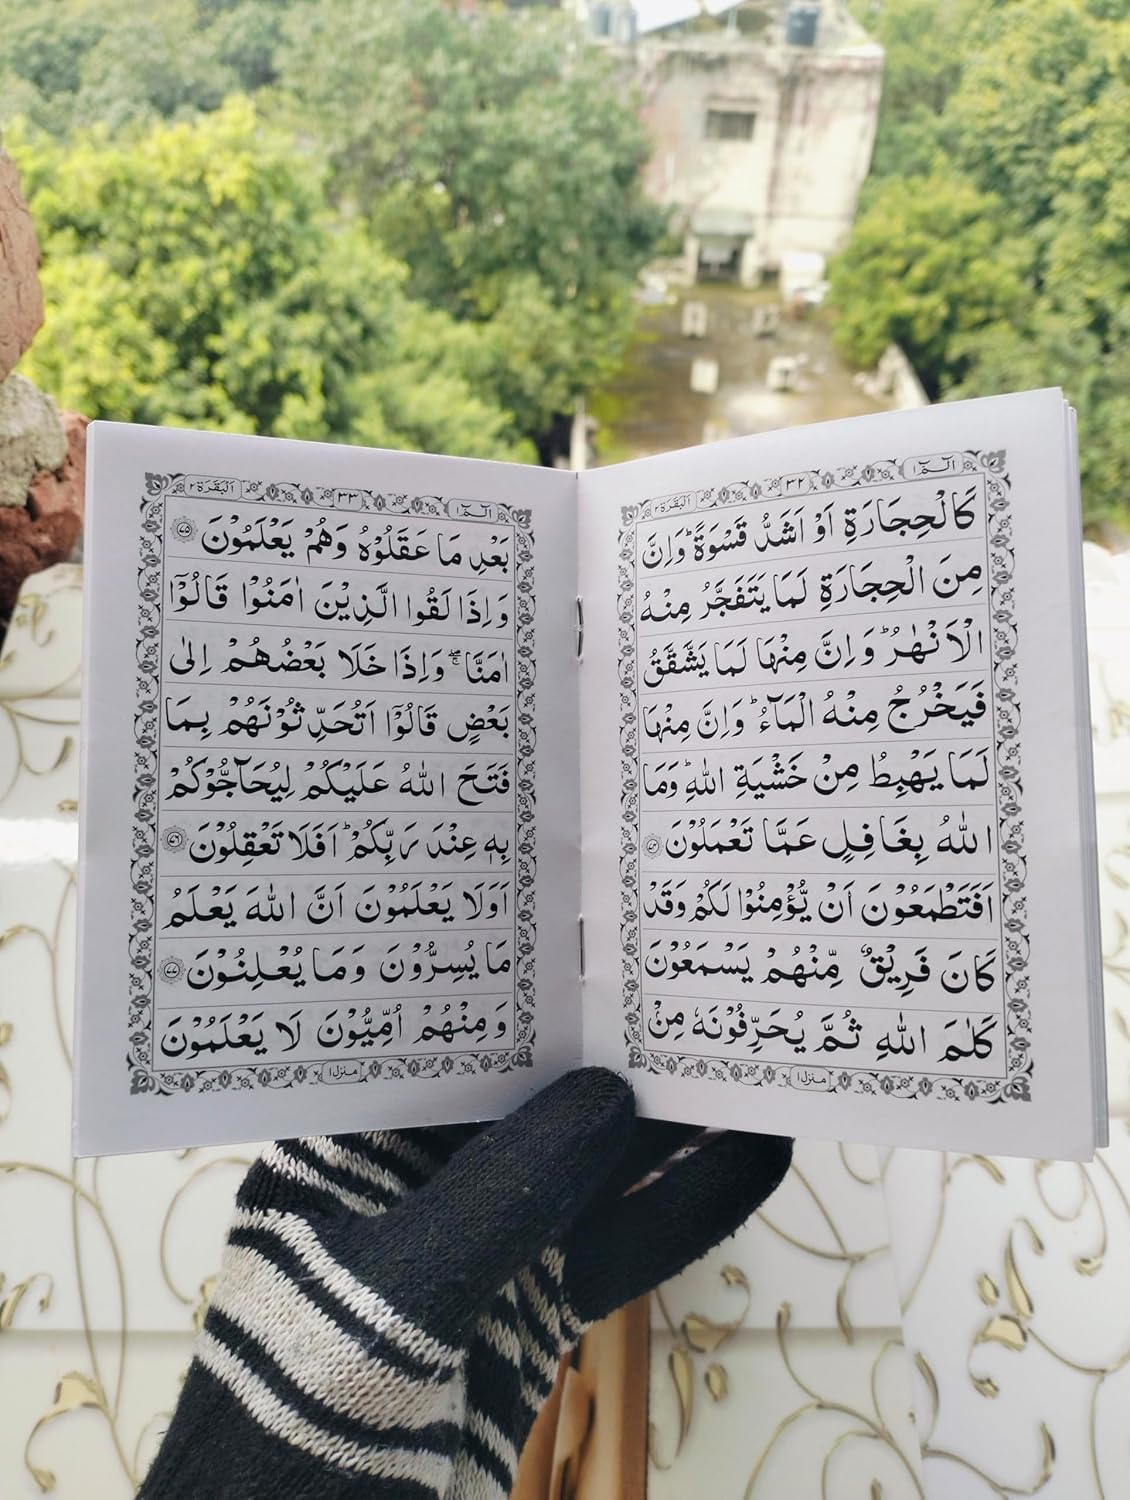 الٓمّٓ ١ ٣٢ اَلْبَقَرَة ٢
كَالْحِجَارَةِ اَوْ اَشَدُّ قَسْوَةً ؕ وَاِنَّ
مِنَ الْحِجَارَةِ لَمَا يَتَفَجَّرُ مِنْهُ
الْاَنْهٰرُ ؕ وَاِنَّ مِنْهَا لَمَا يَشَّقَّقُ
فَيَخْرُجُ مِنْهُ الْمَآءُ ؕ وَاِنَّ مِنْهَا
لَمَا يَهْبِطُ مِنْ خَشْيَةِ اللّٰهِ ؕ وَمَا
اللّٰهُ بِغَافِلٍ عَمَّا تَعْمَلُوْنَ ٧٤
اَفَتَطْمَعُوْنَ اَنْ يُّؤْمِنُوْا لَكُمْ وَقَدْ
كَانَ فَرِيْقٌ مِّنْهُمْ يَسْمَعُوْنَ
كَلٰمَ اللّٰهِ ثُمَّ يُحَرِّفُوْنَهٗ مِنْۢ
منزل ١
الٓمّٓ ١ ٣٣ اَلْبَقَرَة ٢
بَعْدِ مَا عَقَلُوْهُ وَهُمْ يَعْلَمُوْنَ ٧٥
وَاِذَا لَقُوا الَّذِيْنَ اٰمَنُوْا قَالُوْٓا
اٰمَنَّا ۖۚ وَاِذَا خَلَا بَعْضُهُمْ اِلٰى
بَعْضٍ قَالُوْٓا اَتُحَدِّثُوْنَهُمْ بِمَا
فَتَحَ اللّٰهُ عَلَيْكُمْ لِيُحَآجُّوْكُمْ
بِهٖ عِنْدَ رَبِّكُمْ ؕ اَفَلَا تَعْقِلُوْنَ ٧٦
اَوَلَا يَعْلَمُوْنَ اَنَّ اللّٰهَ يَعْلَمُ
مَا يُسِرُّوْنَ وَمَا يُعْلِنُوْنَ ٧٧
وَمِنْهُمْ اُمِّيُّوْنَ لَا يَعْلَمُوْنَ
منزل ١